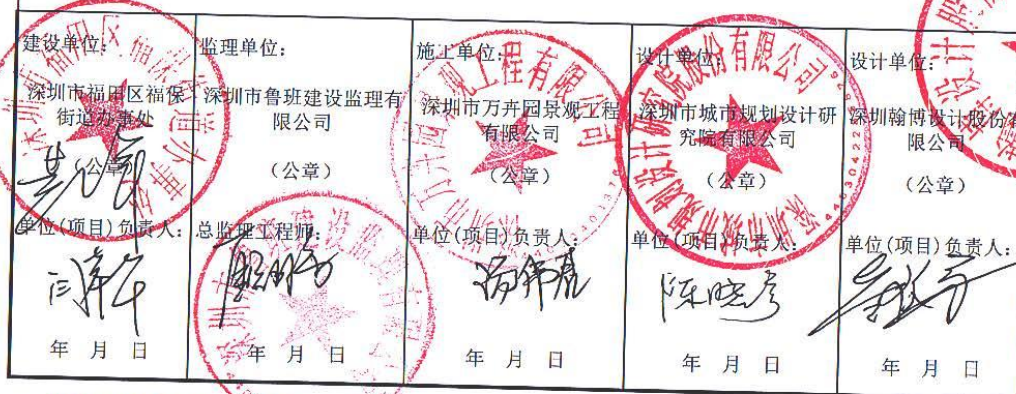 建设单位：
深圳市福田区福保
街道办事处
（公章）
单位(项目)负责人：
年 月 日
监理单位：
深圳市鲁班建设监理有
限公司
（公章）
总监理工程师：
年 月 日
施工单位：
深圳市万卉园景观工程
有限公司
（公章）
单位(项目)负责人：
年 月 日
设计单位：
深圳市城市规划设计研
究院有限公司
（公章）
单位(项目)负责人：
陈晓彦
年 月 日
设计单位：
深圳翰博设计股份有
限公司
（公章）
单位(项目)负责人：
年 月 日